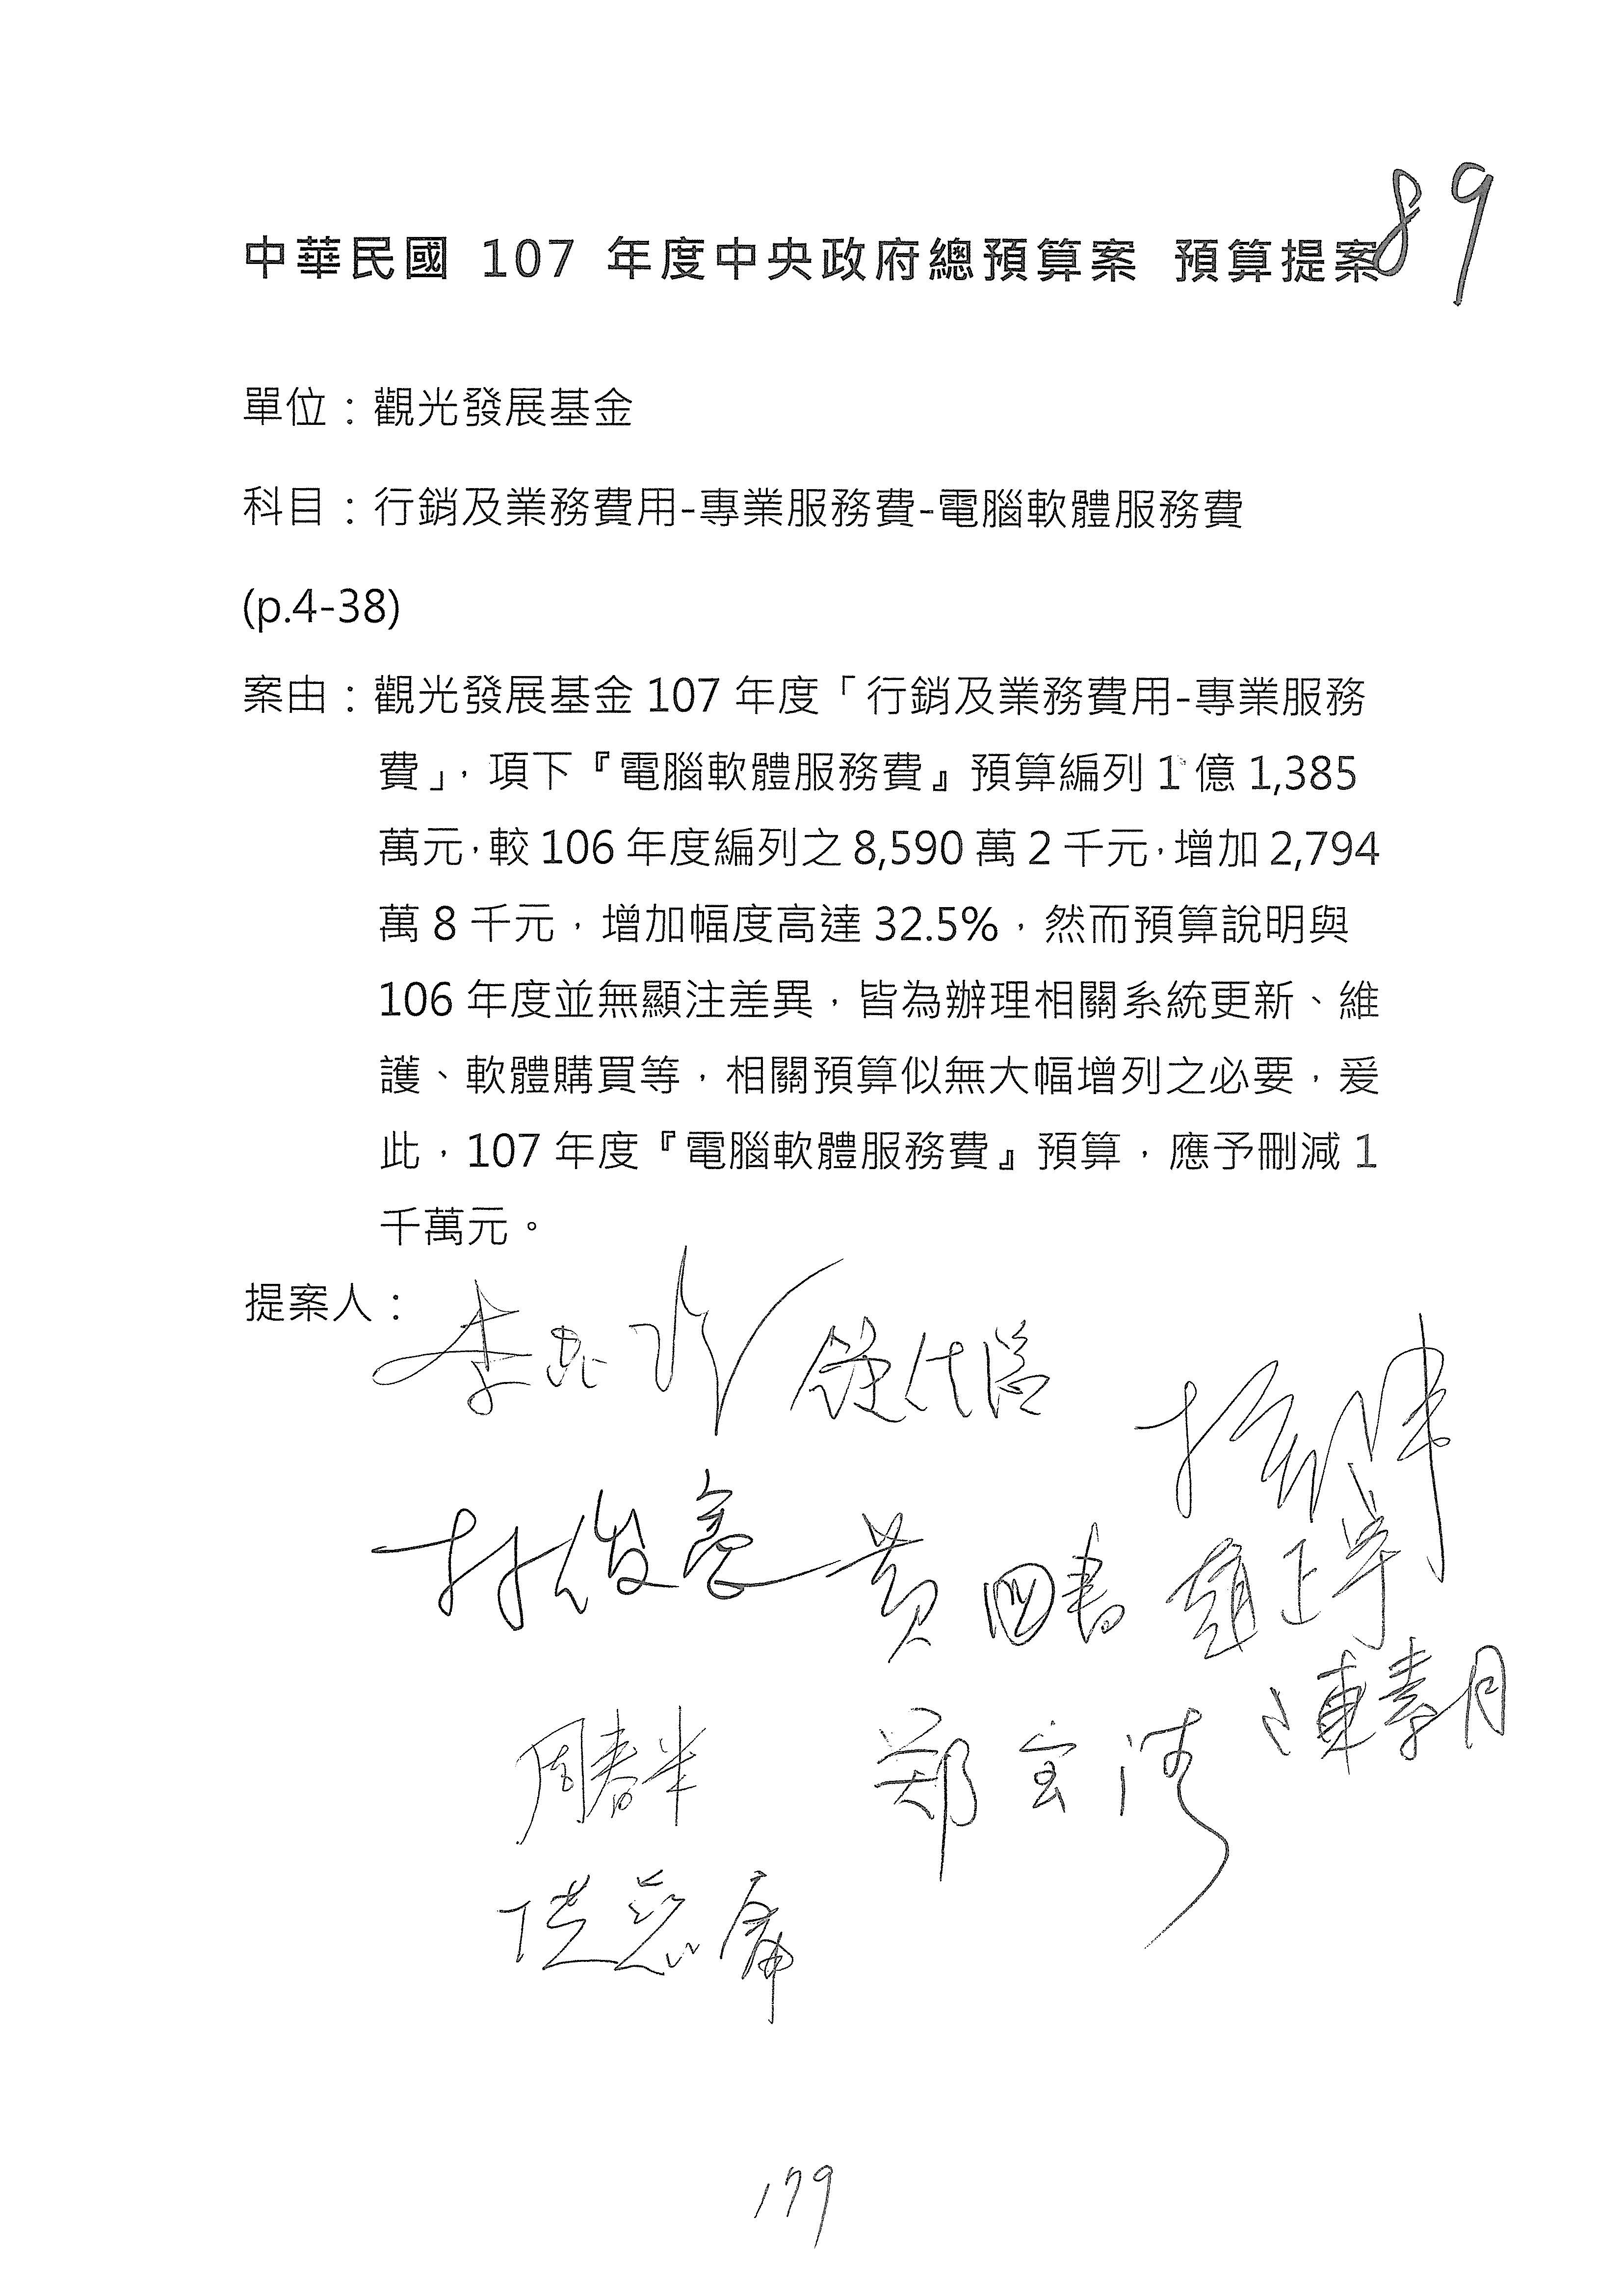 89
中華民國 107 年度中央政府總預算案 預算提案
單位：觀光發展基金
科目：行銷及業務費用-專業服務費-電腦軟體服務費
(p.4-38)
案由：觀光發展基金 107 年度「行銷及業務費用-專業服務
費」，項下『電腦軟體服務費』預算編列 1 億 1,385
萬元，較 106 年度編列之 8,590 萬 2 千元，增加 2,794
萬 8 千元，增加幅度高達 32.5%，然而預算說明與
106 年度並無顯注差異，皆為辦理相關系統更新、維
護、軟體購買等，相關預算似無大幅增列之必要，爰
此，107 年度『電腦軟體服務費』預算，應予刪減 1
千萬元。
提案人：
李昆澤 鍾佳濱
林俊憲 黃國書 趙正宇
陳素月
周春米 鄭寶清
洪慈庸
179